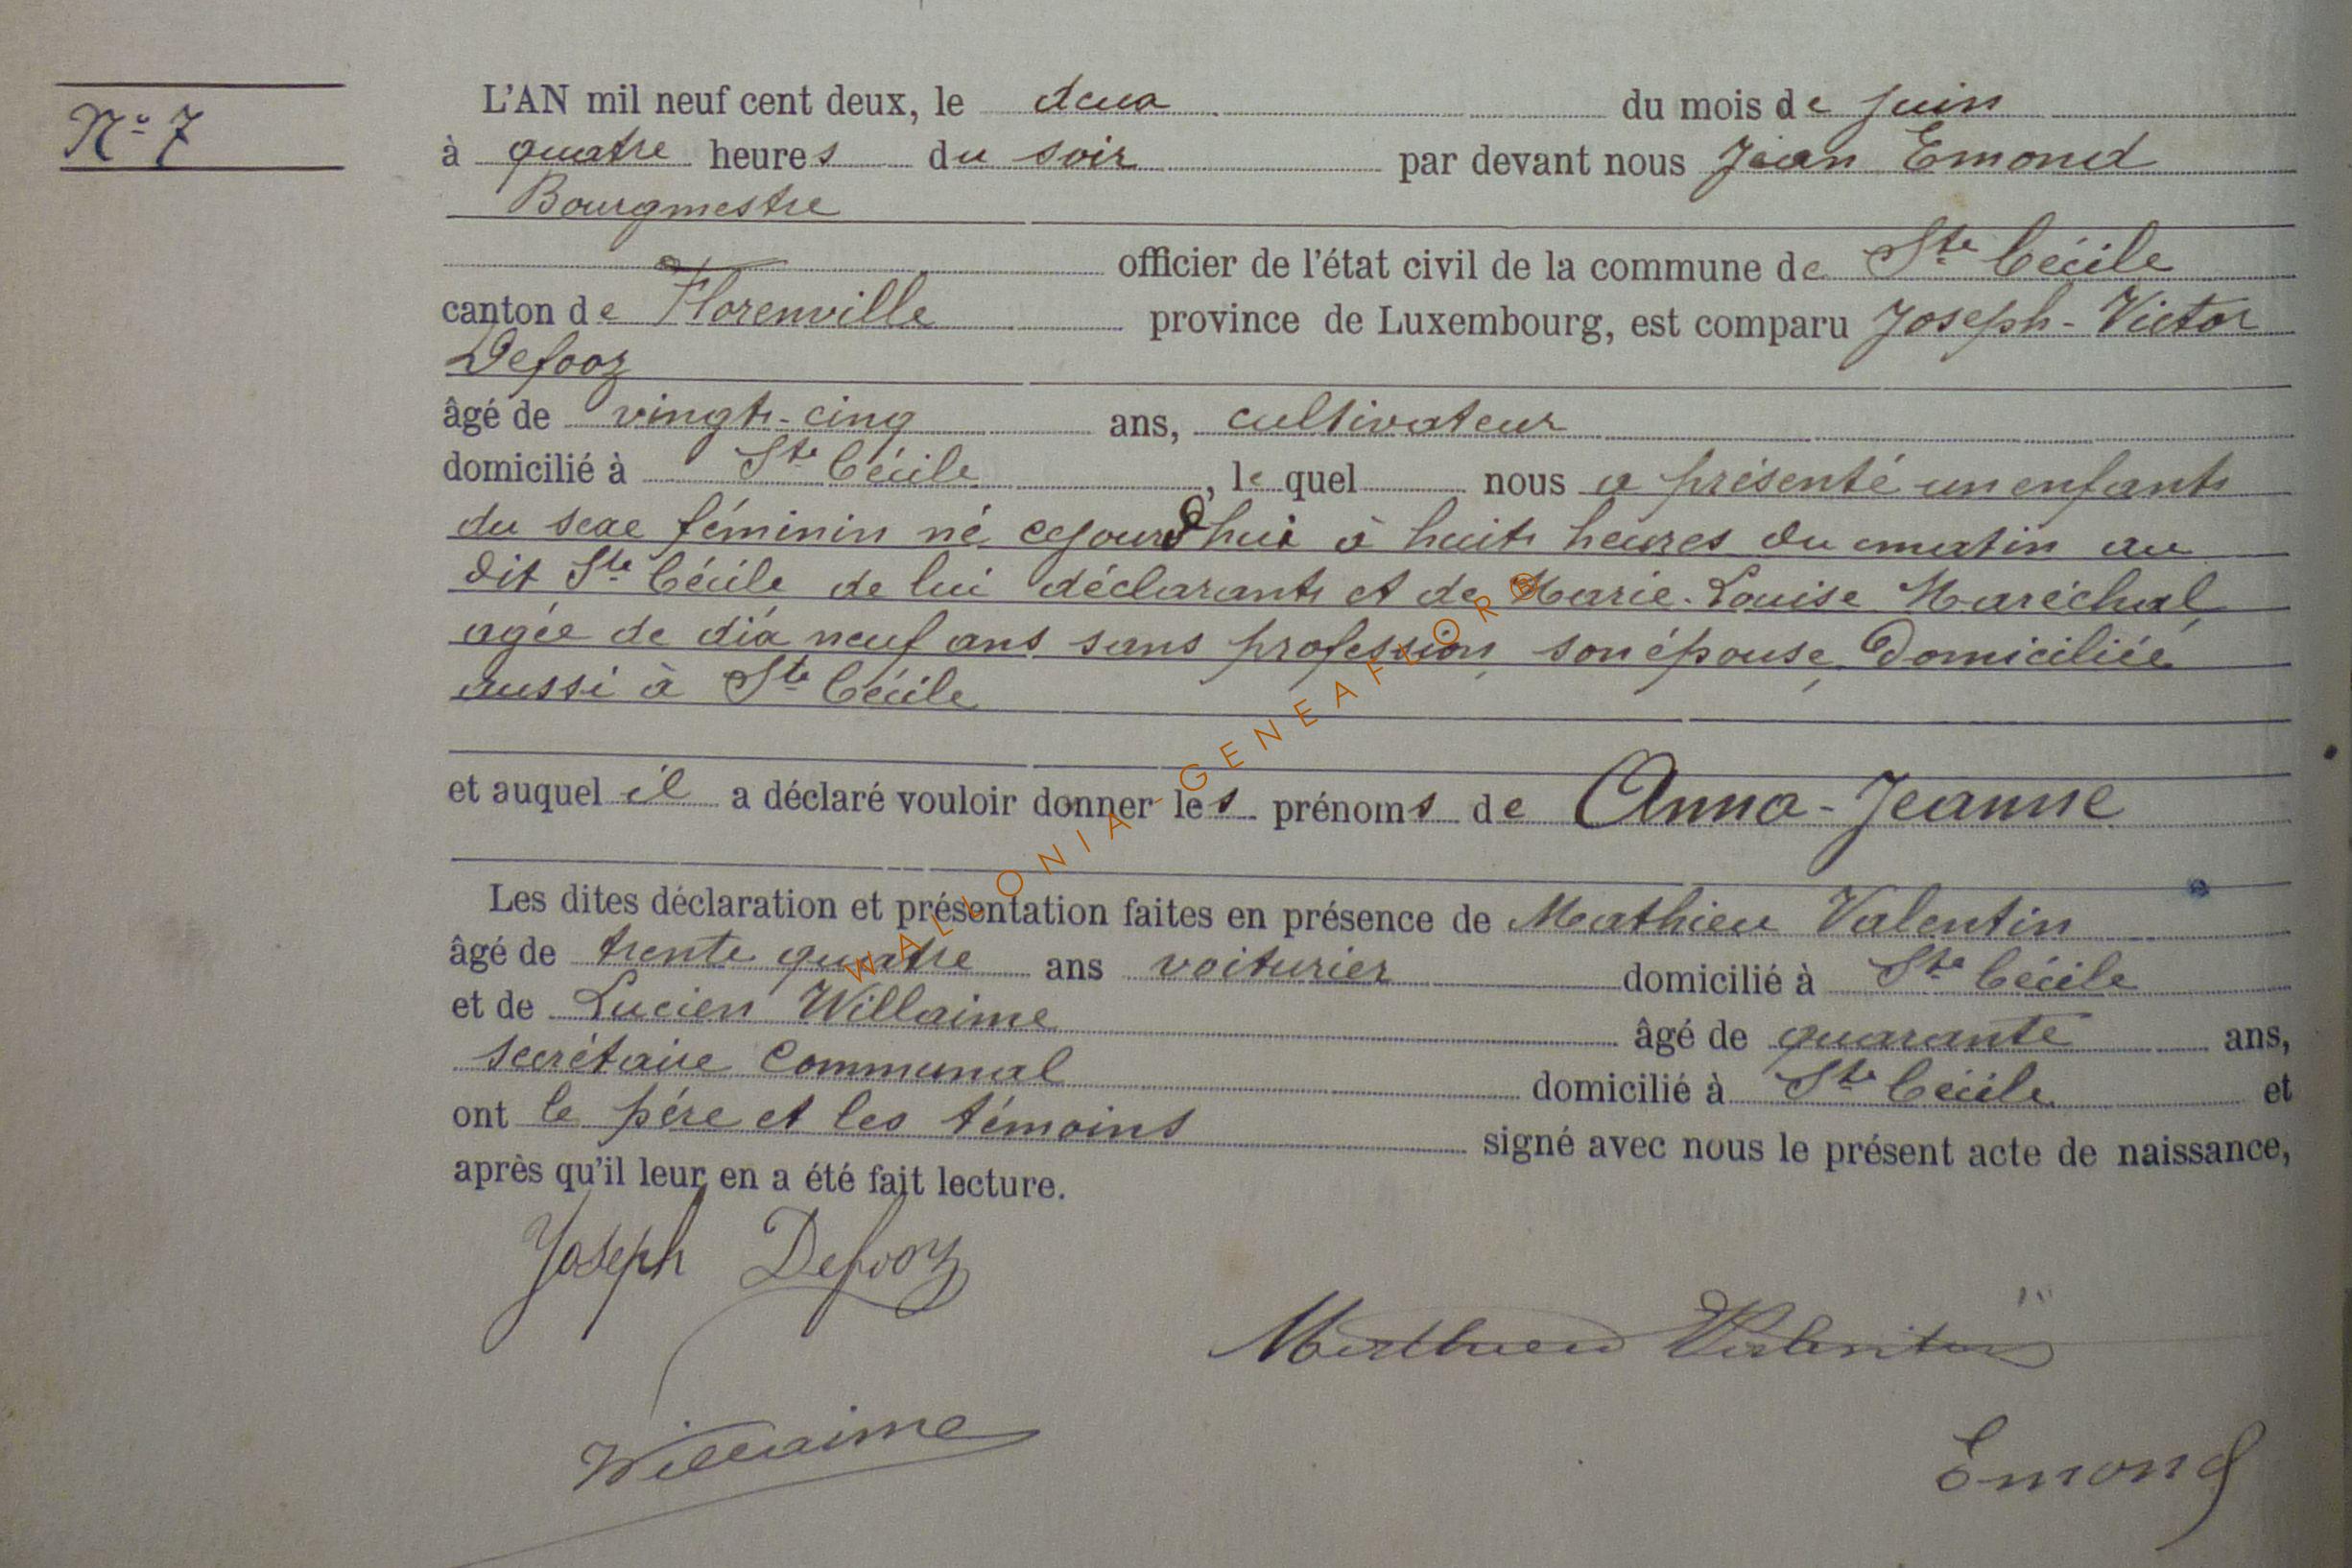 N° 7
L'AN mil neuf cent deux, le deux du mois de juin
à quatre heures du soir par devant nous Jean Emond
Bourgmestre
officier de l'état civil de la commune de Ste Cécile
canton de Florenville province de Luxembourg, est comparu Joseph-Victor
Defooz
âgé de vingt-cinq ans, cultivateur
domicilié à Ste Cécile, lequel nous a présenté un enfant
du sexe féminin né cejourd'hui à huit heures du matin au
dit Ste Cécile de lui déclarant et de Marie-Louise Maréchal,
agée de dix neuf ans sans profession, son épouse, domiciliée
aussi à Ste Cécile
et auquel il a déclaré vouloir donner les prénoms de Anna-Jeanne
Les dites déclaration et présentation faites en présence de Mathieu Valentin
âgé de trente quatre ans voiturier domicilié à Ste Cécile
et de Lucien Willaime âgé de quarante ans,
secrétaire communal domicilié à Ste Cécile et
ont le père et les témoins signé avec nous le présent acte de naissance,
après qu'il leur en a été fait lecture.
Joseph Defooz
Mathieu Valentin
Willaime
Emond
WALLONIA-GENEAFLORB